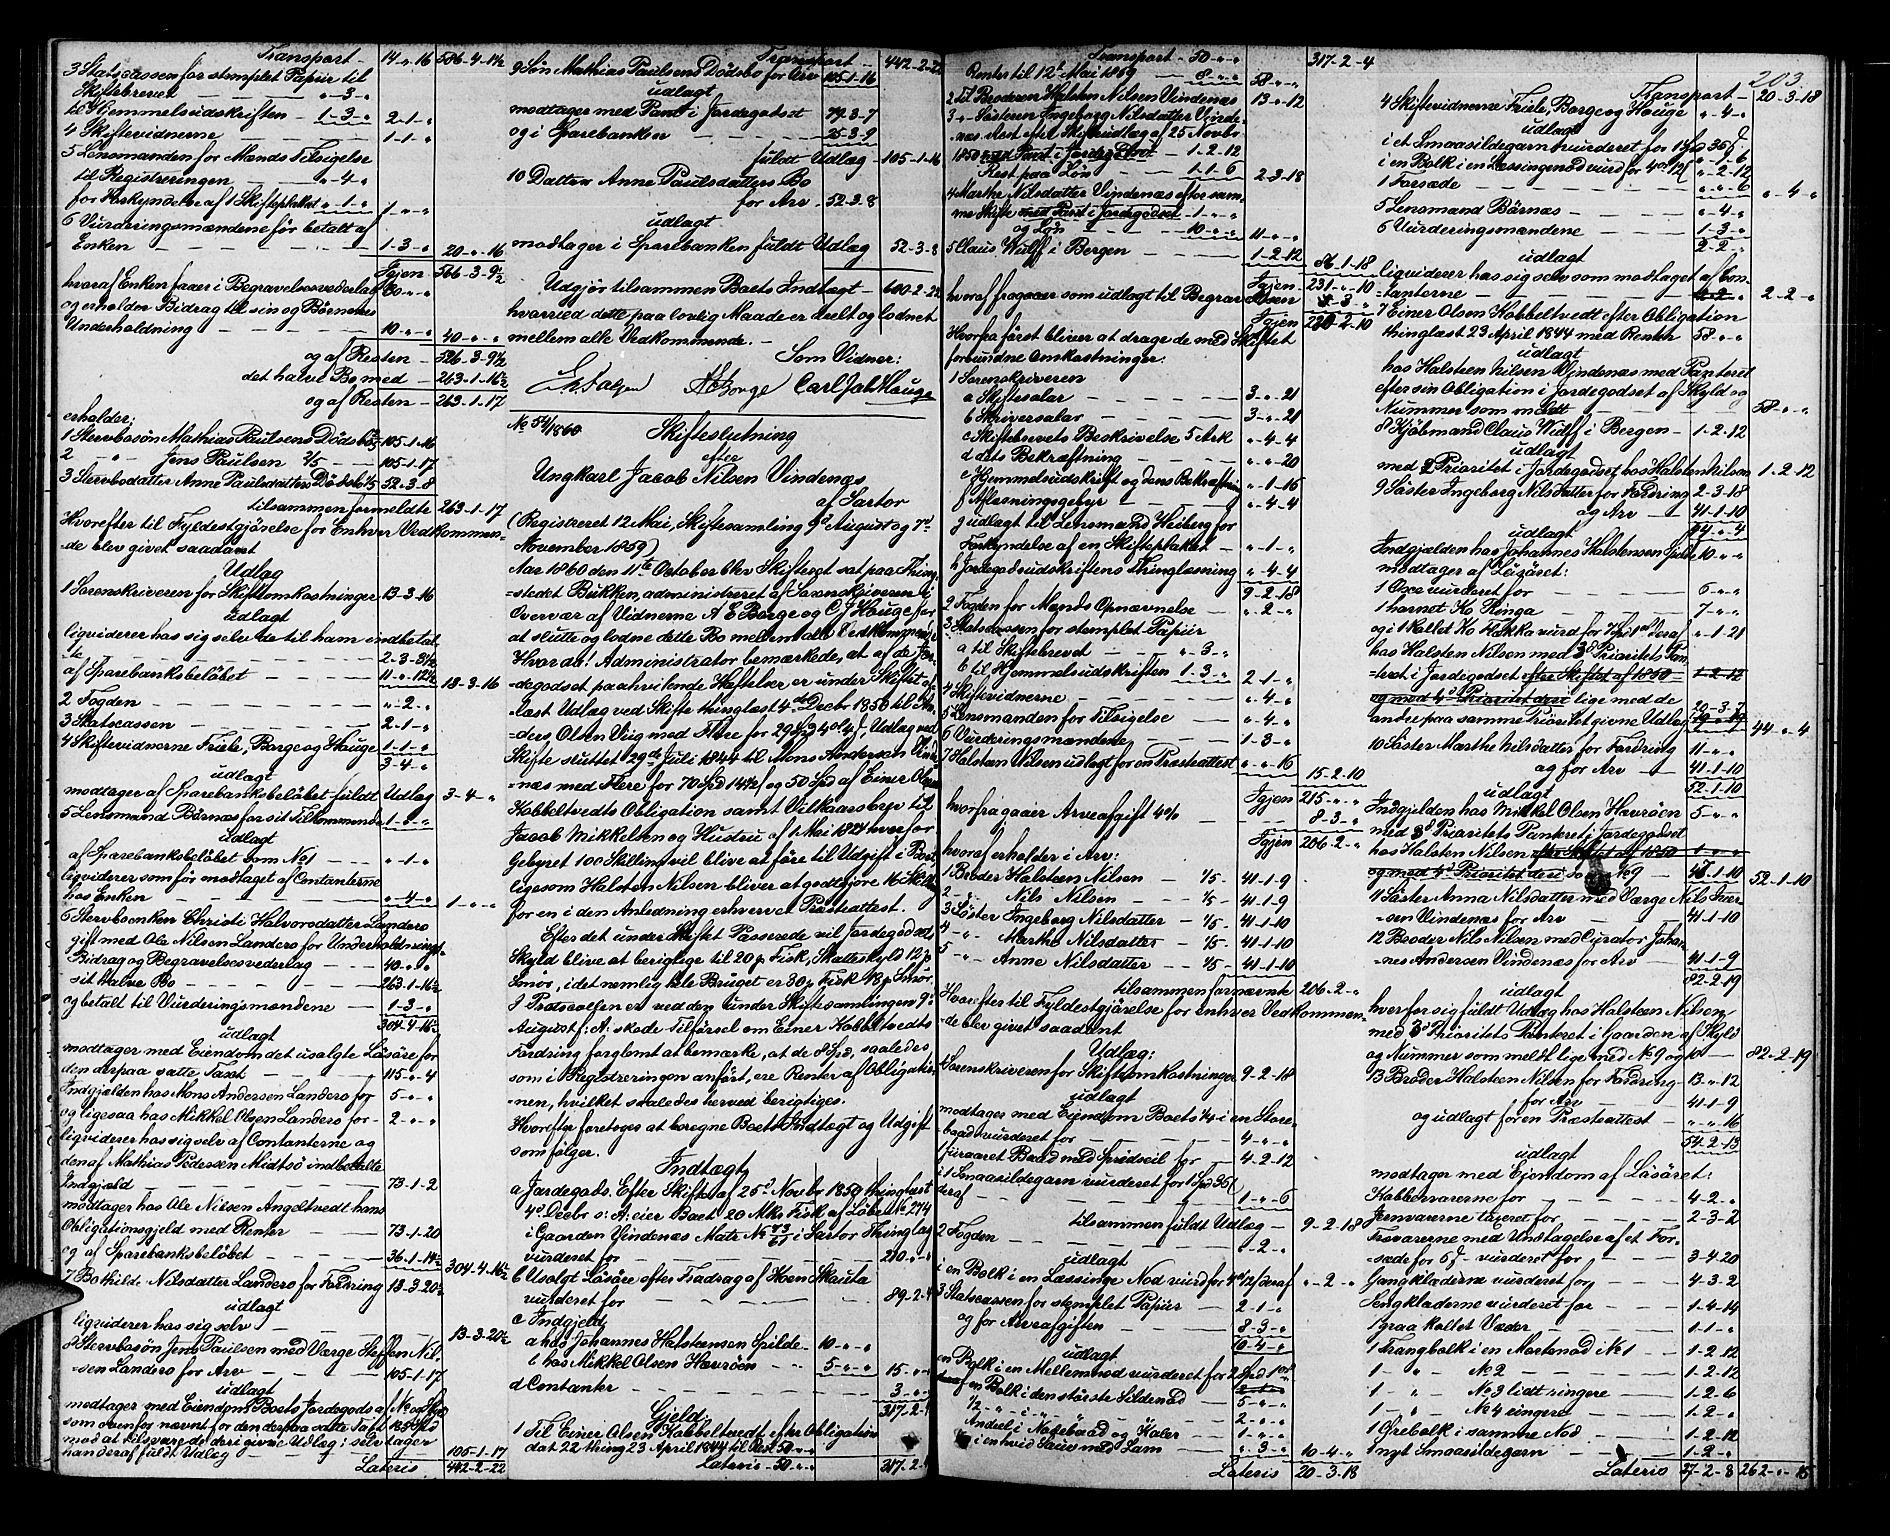 Transport - 14 " 16 | 586-4-14½
3 Statscassen for stemplet Papiir til
Skiftebrevet - " -3- "
til Hjemmelsudskriften - 1-3- " 2-1- "
4 Skiftevidnerne 1-1- "
5 Lensmanden for Mands Tilsigelse
til Registreringen - " -4- "
for Forkyndelse af 1 Skifteplakat " -1- " 1- " - "
6 Vurderingsmændene før betalt af
Enken 1-3- " 20- " -16
Igjen 566-3-9½
hvoraf Enken faaer i Begravelsesvederlag 30- " - "
og erholder Bidrag til sin og Børnenes
Underholdning 10- " - " 40- " - "
og af Resten - 526-3-9½
det halve Bo med - 263-1-16½
og af Resten - 263-1-17
erholder:
1 Stervbosøn Mathias Paulsens Dødsbo 105-1-16
2 - " - Jens Paulsen 2/5 105-1-17
3 Stervbodatter Anne Paulsdatters Dødsbo 1/5 52-3-8
tilsammen formeldte 263-1-17
Hvorefter til Fyldestgjørelse for Enhver Vedkommen-
-de blev givet saadant
Udlæg
1 Sorenskriveren for Skifteomkostninger 13-3-16
udlagt
liqviderer hos sig selv de til ham indbetalte
2-3-3½
af Sparebanksbeløbet 11- " -12½ 13-3-16
2 Fogden " -2- "
3 Statscassen 2-1- "
4 Skiftevidnerne Friele, Borge og Hauge 1-1- "
3-4- "
udlagt
modtager af Sparebanksbeløbet fuldt Udlæg 3-4- "
5 Lensmand Børnæs for sit Tilkommende 1- " - "
udlagt
af Sparebanksbeløbet som No 1 " -1- "
liqviderer som før modtaget af Contanterne
hos Enken " -4- " 1- " - "
6 Stervboenken Christi Halvorsdatter Landero
gift med Ole Nilsen Landero for Underholdnings-
Bidrag og Begravelsesvederlag 40- " - "
sit halve Bo 263-1-16½
og betalt til Vurderingsmændene 1-3- "
304-4-16½
udlagt
modtager med Eiendom det usolgte Løsøre for
den derpaa satte Taxt 115- " -4
Indgjælden hos Mons Andersen Landero for 5- " - "
og ligesaa hos Mikkel Olsen Landero for - 2- " - "
liqviderer hos sig selv af Contanterne og
den af Mathias Pedersen Midtsø indbetalte
Indgjæld 73-1-2
modtager hos Ole Nilsen Angeltvedt hans
Obligationsgjeld med Renter 73-1-20
og af Sparebanksbeløbet 36-1-14½
304-4-16½
7 Bothilde Nilsdatter Landero for Fordring 13-3-20½
udlagt
liqviderer hos sig selv 13-3-20½
8 Stervbosøn Jens Paulsen med Værge Steffen Nil-
-sen Landero for Arv 105-1-17
udlagt
modtager med Eiendom Boets Jordegods af No og Skyld
som ovenfor nævnt for den derpaa satte Taxt
mod at tilsvare de deri givne Udlæg: selv tager
handeraf fuldt Udlæg 105-1-17
Lateris 442-2-22

Transport - 442-2-22
9 Søn Mathias Paulsens Dødsbo for Arv 105-1-16
udlagt
modtager med Pant i Jordegodset 79-3-7
og i Sparebanken 25-3-9
fuldt Udlæg - 105-1-16
10 Datter Anne Paulsdatters Bo
for Arv - 52-3-8
udlagt
modtager i Sparebanken fuldt Udlæg 52-3-8
Udgjør tilsammen Boets Indtægt - 600-2-22
hvormed dette paa lovlig Maade er deelt og lodnet
mellem alle Vedkommende. -
Som Vidner:
A E Borge Carl Joh Hauge
No 54/1860
Skifteslutning
efter
Ungkarl Jacob Nilsen Vindenæs
af Sartor
(Registreret 12 Mai, Skiftesamling 9de August og 7de
November 1859)
Aar 1860 den 11te October blev Skifteret sat paa Thing-
-stedet Bukken, administreret af Sorenskriveren i
Overvær af Vidnerne A E Borge og C J Hauge for
at slutte og lodne dette Bo mellem alle Vedkommende
Hvorda: Administrator bemærkede, at af de Jor-
-degodset paahvilende Heftelser er under Skiftet af-
-læst Udlæg ved Skifte thinglæst 4de Decbr 1850 til An-
-ders Olsen Viig med Flere for 29 Spd 4 ort 4 s, Udlæg ved
Skifte sluttet 29de Juli 1844 til Mons Andersen Vinde-
næs med Flere for 70 Spd 14½ s og 50 Spd af Einer Olsen
Kobbeltvedts Obligation samt Vilkaarsbrev til
Jacob Mikkelsen og Hustru af 1 Mai 1824 hvorfor
Gebyret 100 Skilling vil blive at føre til Udgift i Boet,
ligesom Halsten Nilsen bliver at godtgjøre 16 Skilling
for en i den Anledning erhvervet Præsteattest.
Efter det under Skiftet Passerede vil Jordegodset
Skyld blive at berigtige til 20 p Fisk, Skatteskyld 12 p
Smør, idet nemlig hele Bruget er 30 p Fisk 18 p Smør.
I Protocollen er ved den under Skiftesamlingen 9de
August f: A: skede Tilførsel om Einer Kobbeltvedts
Fordring forglemt at bemærke, at de 8 Spd, saaledes
som i Registreringen anført, ere Renter af Obligatio-
-nen, hvilket saaledes herved berigtiges.
Hvorefter foretoges at beregne Boets Indtægt og Udgift
som følger.
Indtægt,
a Jordegods. Efter Skifte af 25de Novbr 1850 thinglæst
4de Decbr s: A: eier Boet 20 Mkr Fisk af Løbe No 274
i Gaarden Vindenæs Matr No 73/61 i Sartor Thinglag
vurderet for 210- " - "
b Usolgt Løsøre efter Fradrag af Koen Skauta
vurderet for 89-2-4
c Indgjeld
a hos Johannes Halstensen Spilde - 10- " - "
b hos Mikkel Olsen Havrøen 5- " - " 15- " - "
d Contanter 3- " - "
317-2-4
Gjeld
1 Til Einer Olsen Kobbeltvedt efter Obligation
dat 22 thingl 23 April 1844 til Rest 50- " - "
Lateris - 50- " - " 317-2-4

Transport - 50- " - " 317-2-4
Renter til 12te Mai 1859 8- " - " 58- " - "
2 Til Broderen Halsten Nilsen Vindenæs 13- " -12
3 - " - Søsteren Ingeborg Nilsdatter Vinde-
næs Rest efter Skifteudlæg af 25 Novbr
1850 med Pant i Jordegodset - 1-2-12
Rest paa Løn 1-1-6 2-3-18
4 Marthe Nilsdatter Vindenæs efter sam-
me Skifte med Pant i Jordegodset - 1- " - "
og Løn 10- " - " 11- " - "
5 Claus Wulff i Bergen 1-2-12
86-1-18
Igjen 231- " -10
hvoraf fragaaer som udlagt til Begravelsen " -3- "
Igjen 230-2-10
Hvorfra først bliver at drage de med Skiftet
forbundne Omkostninger:
1 Sorenskriveren
a Skiftesalær 3- " -21
b Skriversalær 3- " -21
c Skiftebrevets Beskrivelse 5 Ark " -4-4
d dets Bekræftning " - " -20
e Hjemmelsudskrift og dens Bekræftning " -1-16
f Aflæsningsgebyr " -4-4
g udlagt til Lensmand Heiberg for
Forkyndelse af en Skifteplakat " -1- "
h Jordegodsudskriftens Thinglæsning " -4-4
9-2-18
2 Fogden for Mænds Opnævnelse " -2- "
3 Statscassen for stemplet Papiir
a til Skiftebrevet " -3- "
b til Hjemmelsudskriften 1-3- " 2-1- "
4 Skiftevidnerne " -4- "
5 Lensmanden for Tilsigelse " -4- "
6 Vurderingsmændene 1-3- "
7 Halsten Nilsen udlagt for en Præsteattest " - " -16
15-2-10
Igjen 215- " - "
hvorfragaaer Arveafgift 4% 8-3- "
Igjen 206-2- "
hvoraf erholder i Arv:
1 Broder Halsteen Nilsen - 1/5 - 41-1-9
2 - " - Nils Nilsen - 1/5 - 41-1-9
3 Søster Ingeborg Nilsdatter - 1/5 - 41-1-10
4 - " - Marthe Nilsdatter - 1/5 - 41-1-10
5 - " - Anne Nilsdatter - 1/5 - 41-1-10
tilsammen fornævnte 206-2- "
Hvorefter til Fyldestgjørelse for Enhver Vedkommen-
-de blev givet saadant
Udlæg:
1 Sorenskriveren for Skifteomkostninger 9-2-18
udlagt
modtager med Eiendom Boets ¼ i en Store-
baad vurderet for 4- " - "
firaaret Baad med Spridseil for 4-2-12
i 1 Smaasildegarn vurderet for 1 Spd 36 s
deraf 1- " -6
tilsammen fuldt Udlæg - 9-2-18
2 Fogden " -2- "
udlagt
i en Bolk i en Læssinge Nod vurd for 4 ort 12 s deraf " -2- "
3 Statscassen for stemplet Papiir 2-1- "
og for Arveafgiften 8-3- "
10-4- "
udlagt
en Bolk i en Mellemnod vurderet for 2 Spd 1 ort
en Bolk i den største Sildenod 5- " - "
½ - " - i - " - " 2- " - "
Andeel i Notebaad og Kaler 1- " - "
i en hvid Sau med Lam " -3- " 10-4- "
Lateris 20-3-18

203.
Transport - 20-3-18
4 Skiftevidnerne Friele, Borge og Hauge " -4- "
udlagt
i et Smaasildegarn vurderet for 1 Spd 36 s " -1-6
i en Bolk i en Læssingenod vurd for 4 ort 12 s " -2-12
1 Forsæde " - " -6 " -4- "
5 Lensmand Børnæs " -4- "
6 Vurderingsmændene 1-3- "
2-2- "
udlagt
liqviderer hos sig selv som modtaget af Con-
-tanterne 2-2- "
7 Einer Olsen Kobbeltvedt efter Obligation
thinglæst 23 April 1844 med Renter 58- " - "
udlagt
hos Halsteen Nilsen Vindenæs med Panteret
efter sin Obligation i Jordegodset af Skyld og
Nummer som meldt 58- " - "
8 Kjøbmand Claus Wulff i Bergen - 1-2-12
udlagt
med 2 Prioritet i Jordegodset hos Halsten Nilsen 1-2-12
9 Søster Ingeborg Nilsdatter for Fordring 2-3-18
og Arv 41-1-10
44- " -4
udlagt
Indgjælden hos Johannes Halstensen Spilde 10- " - "
modtager af Løsøret:
1 Oxe vurderet for 6- " - "
1 hornet Ko Ringa 7- " - "
og i 1 kollet Ko Flekka vurd for 7 Spd 1 ort deraf " -1-21
hos Halsten Nilsen med 3de Prioritets Pan-
teret i Jordegodset efter Skiftet af 1850 1-2-12
og med 4de Prioritet deri lige med de
andre paa samme Prioritet givne Udlæg 20-3-7 44- " -4
10 Søster Marthe Nilsdatter for Fordring 11- " - "
og for Arv 41-1-10
52-1-10
udlagt
Indgjelden hos Mikkel Olsen Havrøen 5- " - "
med 3de Prioritets Panteret i Jordegodset
hos Halsten Nilsen efter Skiftet af 1850 1- " - "
og med 4de Prioritet deri som No 9 47-1-10 52-1-10
11 Søster Anna Nilsdatter med Værge Nils Iver-
-sen Vindenæs for Arv 41-1-10
12 Broder Nils Nilsen med Curator Johan-
-nes Andersen Vindenæs for Arv 41-1-9
82-2-19
udlagt
hver for sig fuldt Udlæg hos Halsteen Nilsen
med 3de Prioritets Panteret i Gaarden af Skyld
og Nummer som meldt lige med No 9 og 10 82-2-19
13 Broder Halsteen Nilsen for Fordring 13- " -12
for Arv 41-1-9
og udlagt for en Præsteattest - " - " -16
54-2-13
udlagt
modtager med Ejendom af Løsøret:
Kobbervarerne for 4-2- "
Jernvarerne taxeret for 2-3-2
Trævarerne med Undtagelse af et For-
sæde for 6 s - vurderet for 3-4-20
Gangklæderne vurderet for 4-3-2
Sengklæderne vurderet for 1-4-14
1 graa kollet Væder 1-1- "
1 Trangbolk i en Mortenod No 1 1-2-12
1 - " - No 2 1-2-12
1 - " - No 3 lidt ringere 1-2-6
1 - " - No 4 ringere 1-2- "
1 Ørebolk i samme Nod 1-2-12
1 nyt Smaasildegarn 1-2- "
Lateris 27-2-8 262- " -15